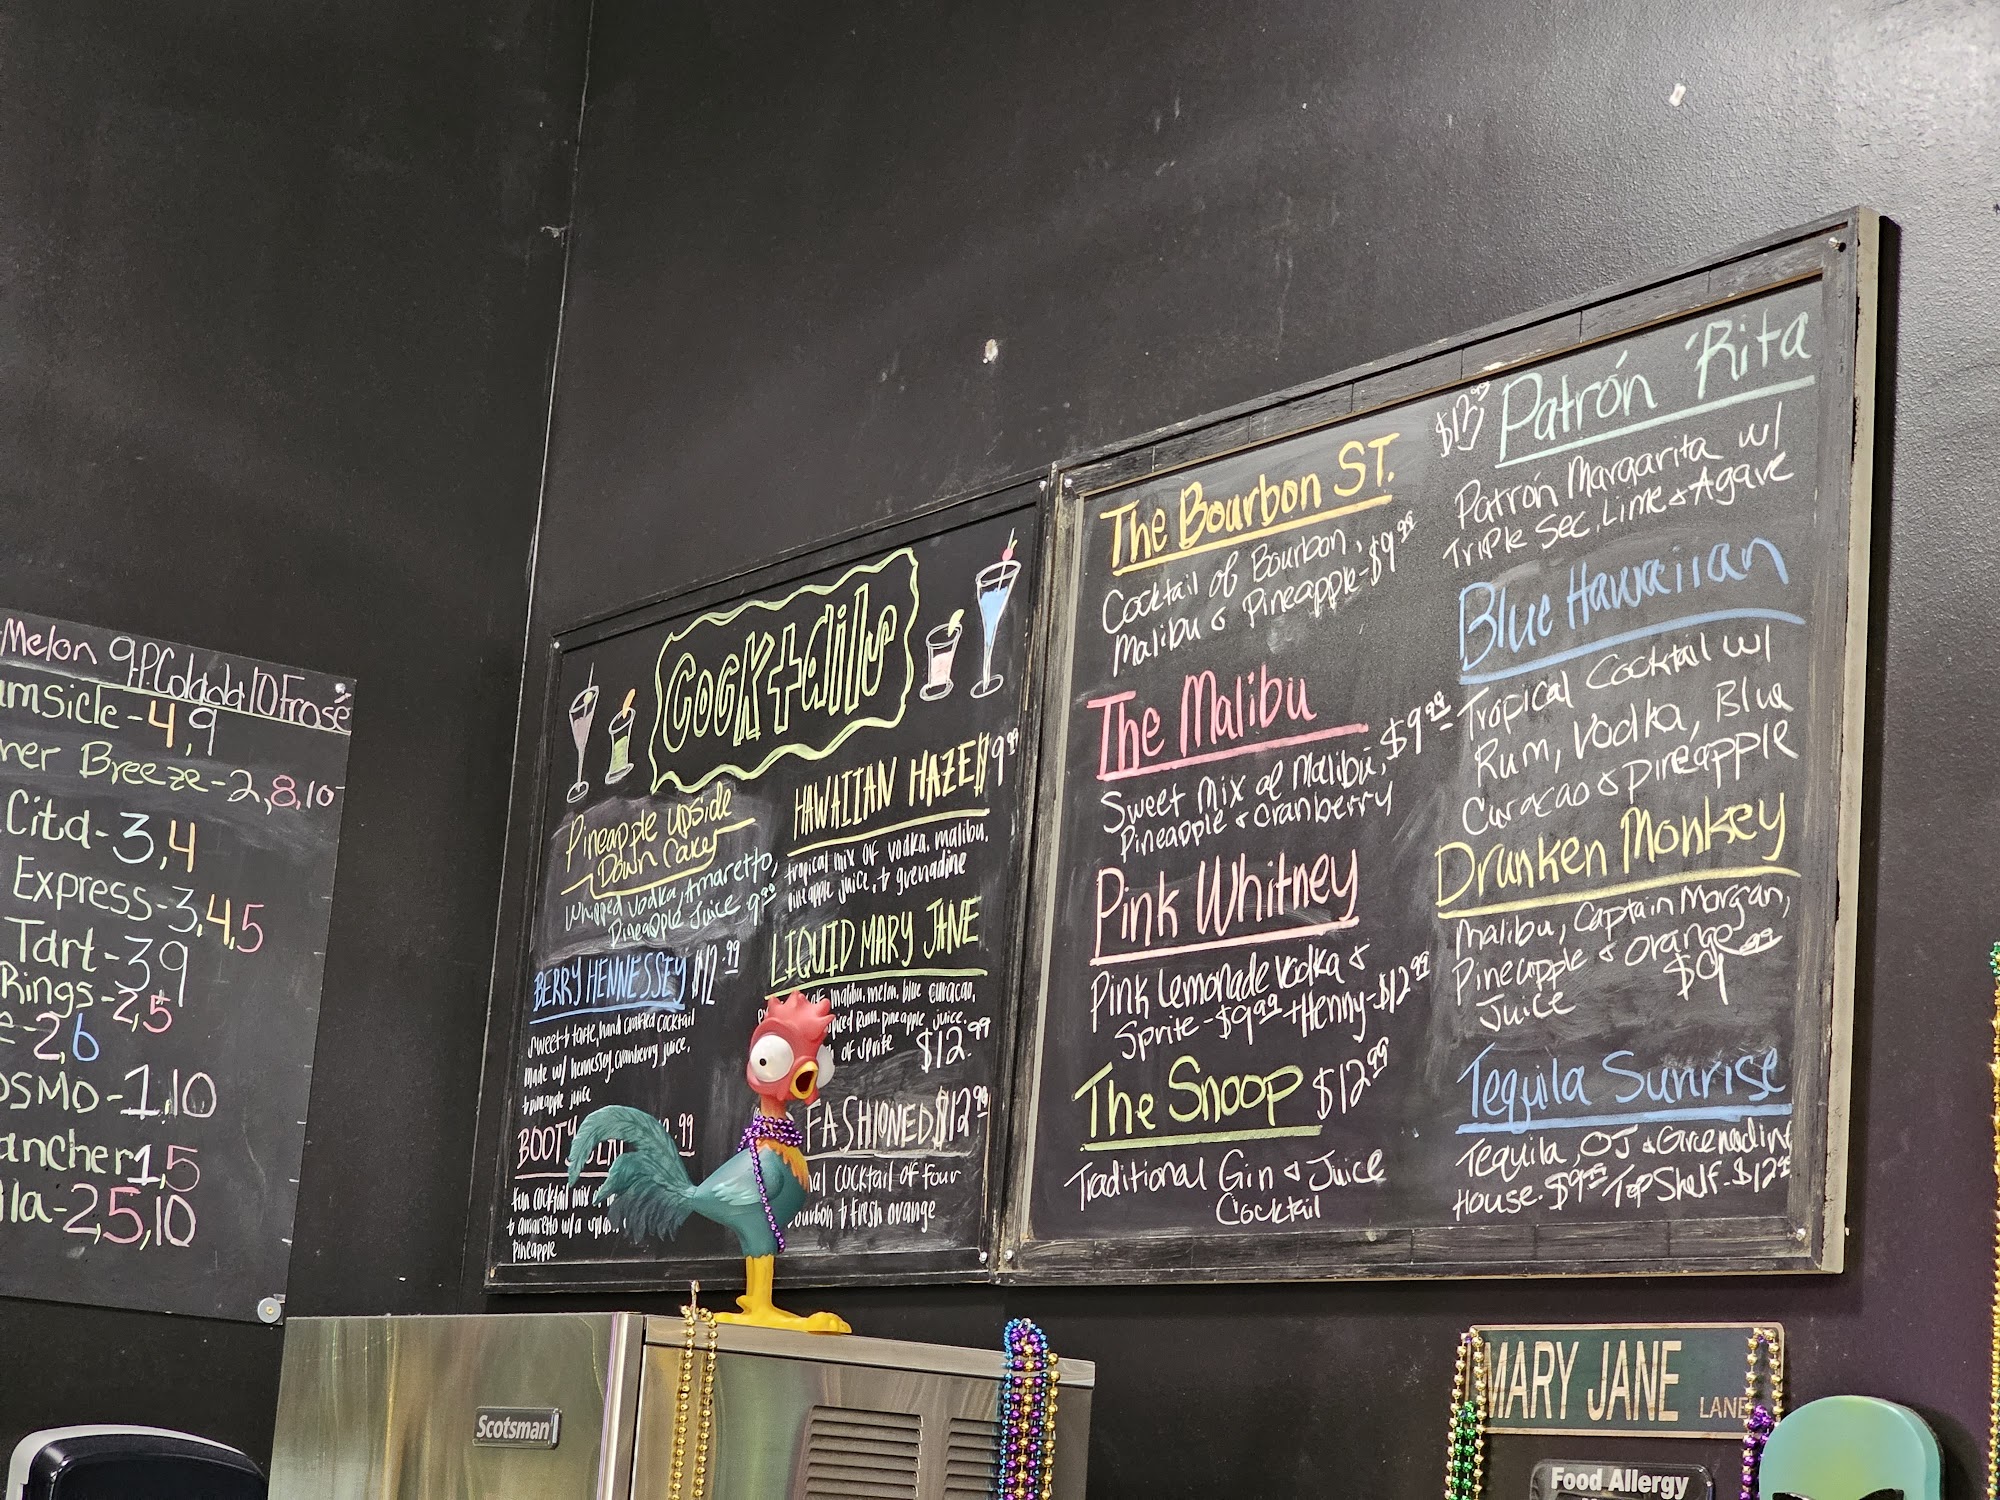 Melon 9-P.Colada 10 Frosé
msicle-4,9
ner Breeze-2,8,10
Cita-3,4
Express-3,4,5
Tart-39
Rings-2,5
e-2,6
OSMO-1,10
ancher 1,5
lla-2,5,10
Cocktails
Pineapple upside
Down Cake
Whipped Vodka, Amaretto,
Pineapple Juice 9.99
BERRY HENNESSEY $12.99
sweet & tarte, hand crafted cocktail
made w/ hennessy, cranberry juice,
& pineapple juice
BOOTY
.99
fun cocktail mix
& amaretto w/a
pineapple
HAWAIIAN HAZE 9.99
tropical mix of vodka, malibu,
pineapple juice, & grenadine
LIQUID MARY JANE
malibu, melon, blue curacao,
spiced rum, pineapple juice,
of sprite $12.99
FASHIONED $12.99
cocktail of four
bourbon & fresh orange
The Bourbon ST.
Cocktail of Bourbon,
Malibu & Pineapple-$9.99
The Malibu
Sweet Mix of Malibu, $9.99
Pineapple & Cranberry
Pink Whitney
Pink Lemonade Vodka &
Sprite-$9.99 +Henny-$12.99
The Snoop $12.99
Traditional Gin & Juice
Cocktail
Patrón 'Rita
Patrón Margarita w/
Triple Sec, Lime & Agave
Blue Hawaiian
Tropical Cocktail w/
Rum, Vodka, Blue
Curacao & Pineapple
Drunken Monkey
Malibu, Captain Morgan,
Pineapple & Orange
Juice $9.99
Tequila Sunrise
Tequila, OJ & Grenadine
House-$9.99 Top Shelf-$12.99
Scotsman
MARY JANE LANE
Food Allergy